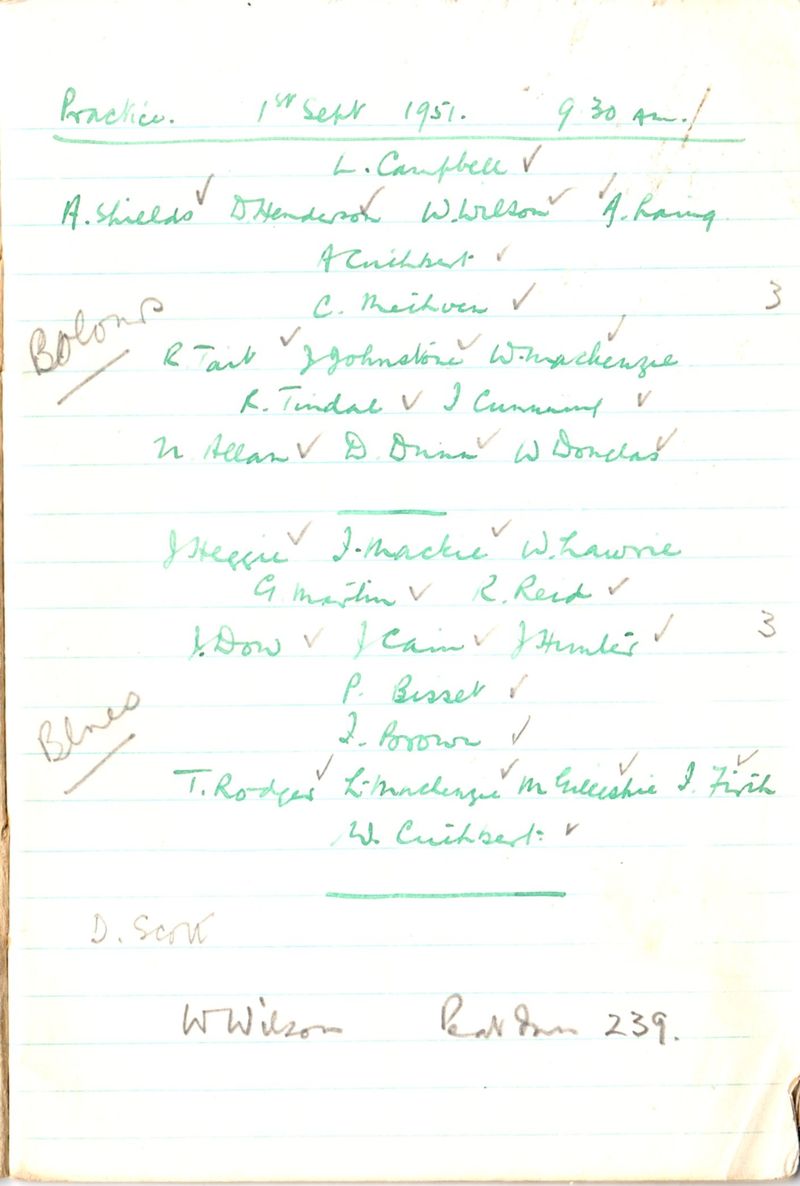 Practice. 1st Sept 1951. 9 30 am.
L. Campbell ✓
A. Shields ✓ D Henderson ✓ W. Wilson ✓ A. Laing ✓
A Cuthbert ✓
C. Methven ✓ 3
R. Tait ✓ J Johnstone ✓ W. Mackenzie ✓
R. Tindal ✓ I Cumming ✓
N. Allan ✓ D. Dunn ✓ W Douglas ✓
J Heggie ✓ I. Mackie ✓ W. Lawrie
G. Martin ✓ R. Reid ✓
J. Dow ✓ J Cain ✓ J Hunter ✓ 3
P. Bisset ✓
Blues
I. Brown ✓
T. Rodger ✓ L. Mackenzie ✓ M Gillespie ✓ I. Firth ✓
W. Cuthbert ✓
D. Scott
W Wilson 239.